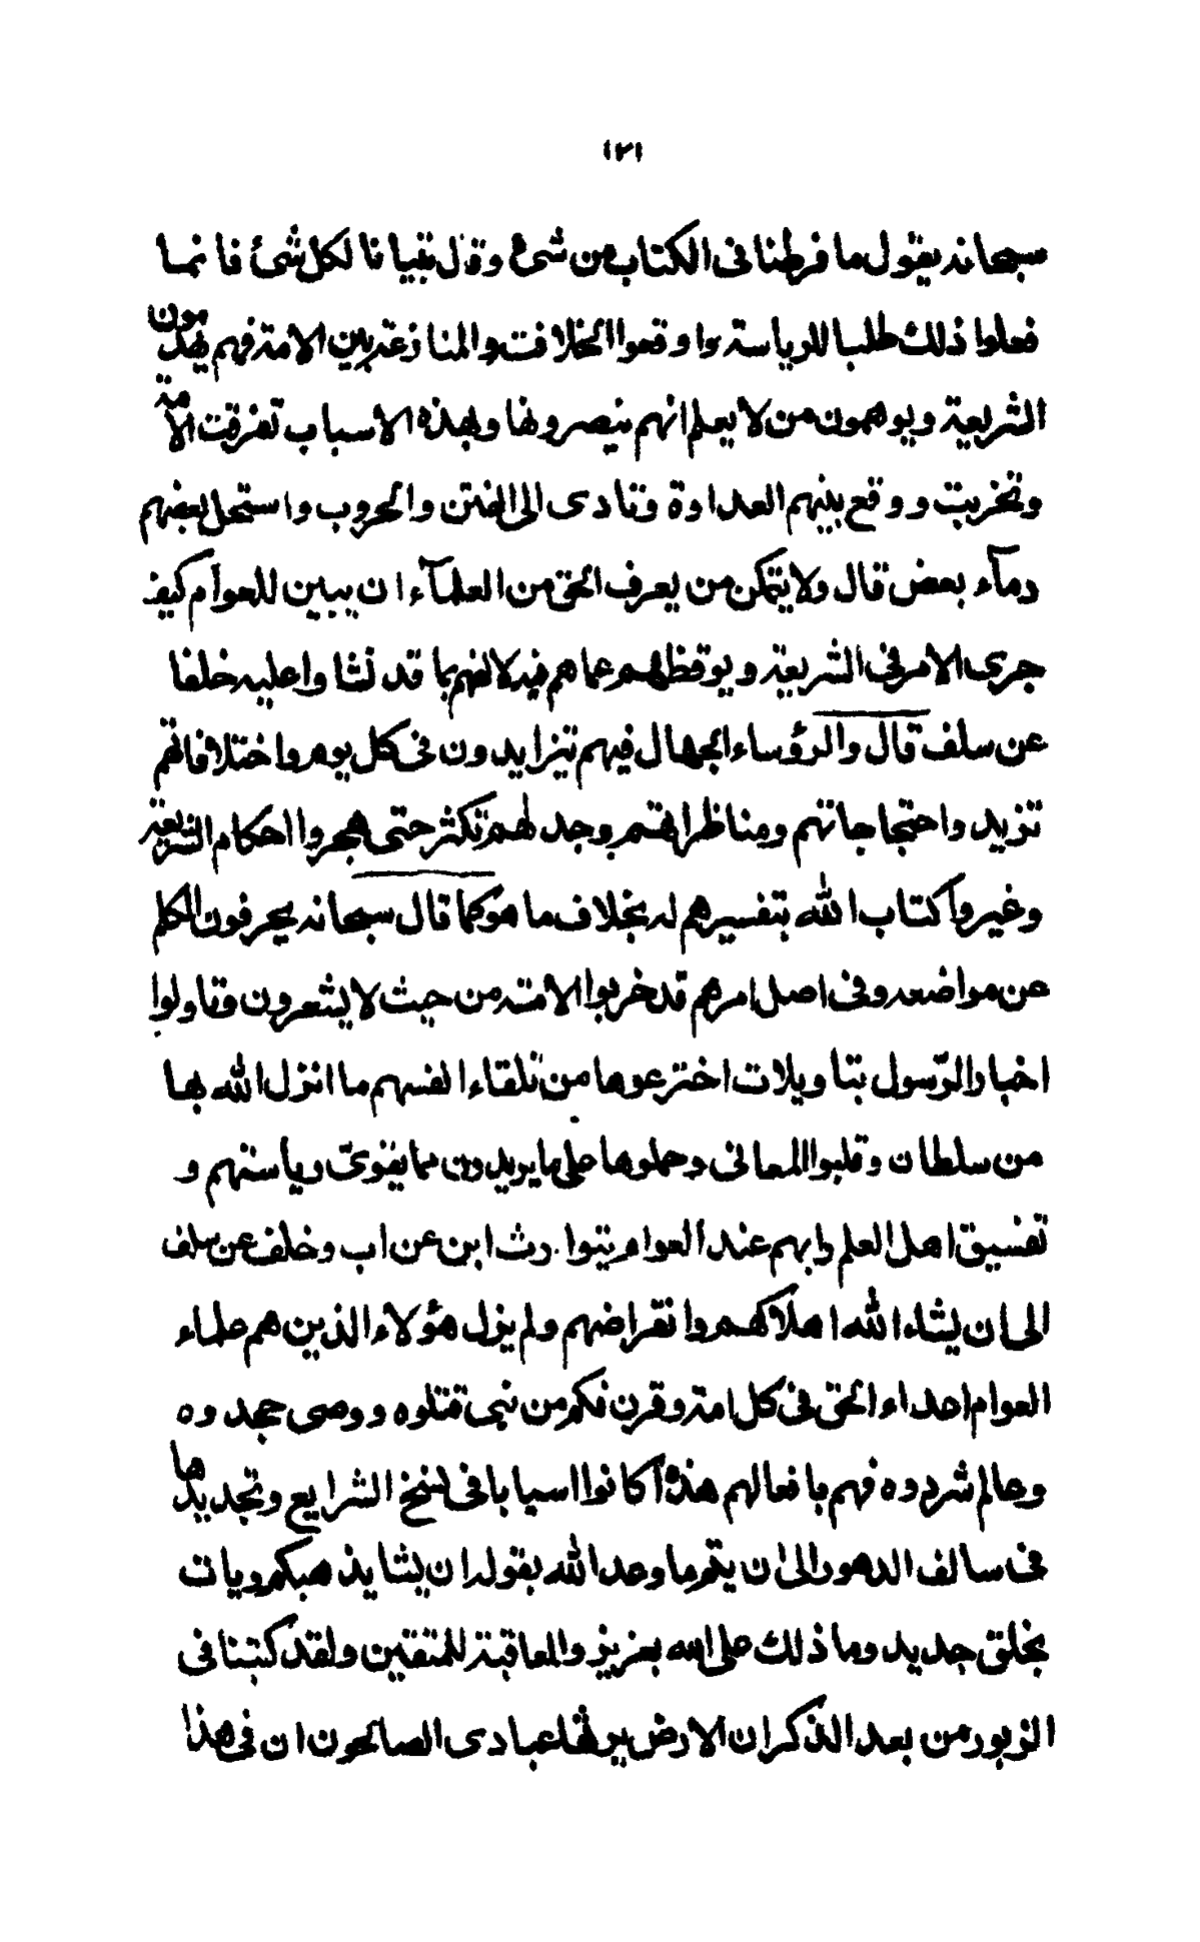 ١٢١
سبحانه يقول ما فرطنا فى الكتاب من شئ وقال تبيانا لكل شئ فانما
فعلوا ذلك طلبا للرياسة واوقعوا الخلاف والمنازعة بين الامة فهم يهدمون
الشريعة ويوهمون من لا يعلم انهم ينصرونها وبهذه الاسباب تفرقت الامة
وتخربت ووقع بينهم العداوة وتادى الى الفتن والحروب واستحل بعضهم
دمآء بعض قال ولا يتمكن من يعرف الحق من العلمآء ان يبين للعوام كيف
جرى الامر فى الشريعة ويوقظهم عما هم فيه لانهم بما قد نشاوا عليه خلفا
عن سلف قال والرؤساء الجهال فيهم تتزايدون فى كل يوم واختلافاتهم
تزيد واحتجاجاتهم ومناظراتهم وجدلهم تكثر حتى هجروا احكام الشريعة
وغيروا كتاب الله بتفسيرهم له بخلاف ما هو كما قال سبحانه يحرفون الكلم
عن مواضعه وفى اصل امرهم قد خربوا الامة من حيث لا يشعرون وتاولوا
اخبار الرّسول بتاويلات اخترعوها من تلقاء انفسهم ما انزل الله بها
من سلطان وقلبوا المعانى وحملوها على ما يريدون مما يقوى رياستهم و
تفسيق اهل العلم دابهم عند العوام يتوارث ابن عن اب وخلف عن سلف
الى ان يشاء الله اهلاكهم وانقراضهم ولم يزل هؤلاء الذين هم علماء
العوام اعداء الحق فى كل امة وقرن فكم من نبى قتلوه ووصى جحدوه
وعالم شردوه فهم بافعالهم هذه كانوا اسبابا فى نسخ الشرايع وتجديدها
فى سالف الدهور الى ان يتم ما وعد الله بقوله ان يشا يذهبكم ويات
بخلق جديد وما ذلك على الله بعزيز والعاقبة للمتقين ولقد كتبنا فى
الزبور من بعد الذكر ان الارض يرثها عبادى الصالحون ان فى هذا